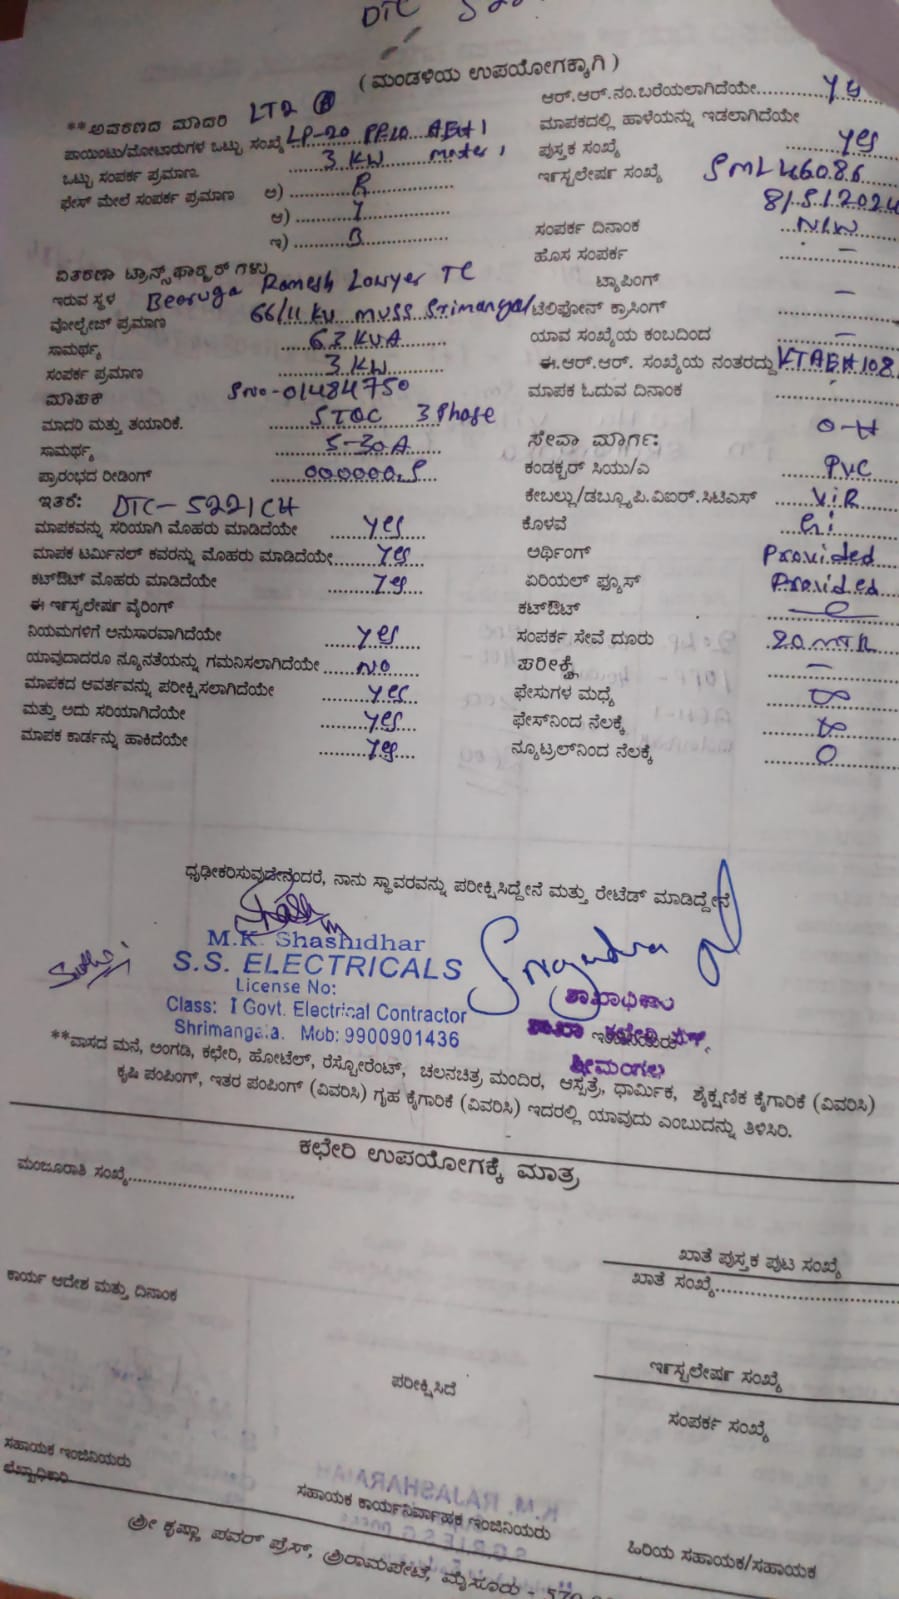 DTC 522
( ಮಂಡಳಿಯ ಉಪಯೋಗಕ್ಕಾಗಿ )
**ಅವಕರಣದ ಮಾದರಿ LT2
ಪಾಯಿಂಟು/ಮೋಟಾರುಗಳ ಒಟ್ಟು ಸಂಖ್ಯೆ LP-20 PP10 AEH 1
ಒಟ್ಟು ಸಂಪರ್ಕ ಪ್ರಮಾಣ. 3 KW
ಫೇಸ್ ಮೇಲೆ ಸಂಪರ್ಕ ಪ್ರಮಾಣ ಅ) R
ಆ) Y
ಇ) B
ವಿತರಣಾ ಟ್ರಾನ್ಸ್‌ಫಾರ್‍ಮರ್ ಗಳು
ಇರುವ ಸ್ಥಳ Bearuga Ramesh Lowyer TC
ವೋಲ್ಟೇಜ್ ಪ್ರಮಾಣ 66/11 KV MUSS Srimangal
ಸಾಮರ್ಥ್ಯ 63 KVA
ಸಂಪರ್ಕ ಪ್ರಮಾಣ 3 KW
ಮಾಪಕ SNo-01484750
ಮಾದರಿ ಮತ್ತು ತಯಾರಿಕೆ. 3 Phase
ಸಾಮರ್ಥ್ಯ 5-30A
ಪ್ರಾರಂಭದ ರೀಡಿಂಗ್ 000000.5
ಇತರೆ: DTC-5221CH
ಮಾಪಕವನ್ನು ಸರಿಯಾಗಿ ಮೊಹರು ಮಾಡಿದೆಯೇ yes
ಮಾಪಕ ಟರ್ಮಿನಲ್ ಕವರನ್ನು ಮೊಹರು ಮಾಡಿದೆಯೇ yes
ಕಟ್‌ಔಟ್ ಮೊಹರು ಮಾಡಿದೆಯೇ yes
ಈ ಇನ್ಸ್ಟಲೇಷನ್ ವೈರಿಂಗ್
ನಿಯಮಗಳಿಗೆ ಅನುಸಾರವಾಗಿದೆಯೇ yes
ಯಾವುದಾದರೂ ನ್ಯೂನತೆಯನ್ನು ಗಮನಿಸಲಾಗಿದೆಯೇ No
ಮಾಪಕದ ಆವರ್ತವನ್ನು ಪರೀಕ್ಷಿಸಲಾಗಿದೆಯೇ yes
ಮತ್ತು ಅದು ಸರಿಯಾಗಿದೆಯೇ yes
ಮಾಪಕ ಕಾರ್ಡನ್ನು ಹಾಕಿದೆಯೇ yes
ಆರ್.ಆರ್.ನಂ.ಬರೆಯಲಾಗಿದೆಯೇ
ಮಾಪಕದಲ್ಲಿ ಹಾಳೆಯನ್ನು ಇಡಲಾಗಿದೆಯೇ
ಪುಸ್ತಕ ಸಂಖ್ಯೆ yes
ಇನ್ಸ್ಟಲೇಷನ್ ಸಂಖ್ಯೆ SML46086
ಸಂಪರ್ಕ ದಿನಾಂಕ
ಹೊಸ ಸಂಪರ್ಕ
ಟ್ಯಾಪಿಂಗ್
ಟೆಲಿಫೋನ್ ಕ್ರಾಸಿಂಗ್
ಯಾವ ಸಂಖ್ಯೆಯ ಕಂಬದಿಂದ
ಈ.ಆರ್.ಆರ್. ಸಂಖ್ಯೆಯ ನಂತರದ್ದು KTAEH108
ಮಾಪಕ ಓದುವ ದಿನಾಂಕ
ಸೇವಾ ಮಾರ್ಗ: O-H
ಕಂಡಕ್ಟರ್ ಸಿಯು/ಎ PVC
ಕೇಬಲ್ಲು/ಡಬ್ಲ್ಯೂ.ಪಿ.ವಿಐಆರ್.ಸಿಟಿಎಸ್ ViR
ಕೊಳವೆ Gi
ಅರ್ಥಿಂಗ್ Provided
ಏರಿಯಲ್ ಫ್ಯೂಸ್ Provided
ಕಟ್‌ಔಟ್
ಸಂಪರ್ಕ ಸೇವೆ ದೂರು 20 MTR
ಪರೀಕ್ಷೆ –
ಫೇಸುಗಳ ಮಧ್ಯೆ ∞
ಫೇಸ್‌ನಿಂದ ನೆಲಕ್ಕೆ ∞
ನ್ಯೂಟ್ರಲ್‌ನಿಂದ ನೆಲಕ್ಕೆ 0
ಧೃಢೀಕರಿಸುವುದೇನೆಂದರೆ, ನಾನು ಸ್ಥಾವರವನ್ನು ಪರೀಕ್ಷಿಸಿದ್ದೇನೆ ಮತ್ತು ರೇಟೆಡ್ ಮಾಡಿದ್ದೇನೆ
M.K. Shashidhar
S.S. ELECTRICALS
License No:
Class: I Govt. Electrical Contractor
Shrimangala. Mob: 9900901436
ಶಾಖಾಧಿಕಾರಿ
ಶಾಖಾ ಕಛೇರಿ
ಶ್ರೀಮಂಗಲ
**ವಾಸದ ಮನೆ, ಅಂಗಡಿ, ಕಛೇರಿ, ಹೋಟೆಲ್, ರೆಸ್ಟೋರೆಂಟ್, ಚಲನಚಿತ್ರ ಮಂದಿರ, ಆಸ್ಪತ್ರೆ, ಧಾರ್ಮಿಕ, ಶೈಕ್ಷಣಿಕ ಕೈಗಾರಿಕೆ (ವಿವರಿಸಿ)
ಕೃಷಿ ಪಂಪಿಂಗ್, ಇತರ ಪಂಪಿಂಗ್ (ವಿವರಿಸಿ) ಗೃಹ ಕೈಗಾರಿಕೆ (ವಿವರಿಸಿ) ಇದರಲ್ಲಿ ಯಾವುದು ಎಂಬುದನ್ನು ತಿಳಿಸಿರಿ.
ಕಛೇರಿ ಉಪಯೋಗಕ್ಕೆ ಮಾತ್ರ
ಮಂಜೂರಾತಿ ಸಂಖ್ಯೆ
ಖಾತೆ ಪುಸ್ತಕ ಪುಟ ಸಂಖ್ಯೆ
ಖಾತೆ ಸಂಖ್ಯೆ
ಕಾರ್ಯ ಆದೇಶ ಮತ್ತು ದಿನಾಂಕ
ಇನ್ಸ್ಟಲೇಷನ್ ಸಂಖ್ಯೆ
ಪರೀಕ್ಷಿಸಿದೆ
ಸಂಪರ್ಕ ಸಂಖ್ಯೆ
ಸಹಾಯಕ ಇಂಜಿನಿಯರು
ಸಹಾಯಕ ಕಾರ್ಯನಿರ್ವಾಹಕ ಇಂಜಿನಿಯರು
ಹಿರಿಯ ಸಹಾಯಕ/ಸಹಾಯಕ
ಶ್ರೀ ಕೃಷ್ಣಾ ಪವರ್ ಪ್ರೆಸ್, ಶ್ರೀರಾಮಪೇಟೆ, ಮೈಸೂರು - 570